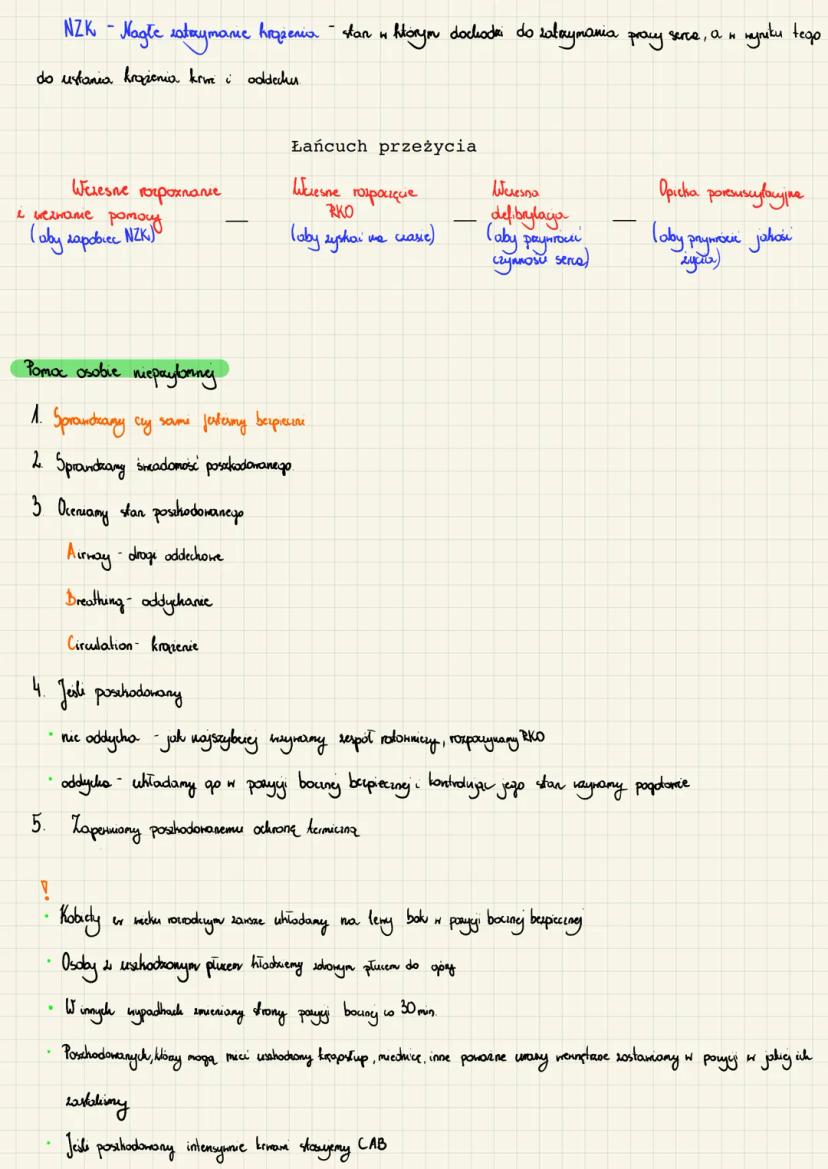 NZK - Nagłe zatrzymanie krążenia - stan w którym dochodzi do zatrzymania pracy serca, a w wyniku tego
do ustania krążenia krwi i oddechu
Łańcuch przeżycia
Wczesne rozpoznanie
i wezwanie pomocy
(aby zapobiec NZK)
Wczesne rozpoczęcie
RKO
(aby zyskać na czasie)
Wczesna
defibrylacja
(aby przywrócić
czynność serca)
Opieka poresuscytacyjna
(aby przywrócić jakość
życia)
Pomoc osobie nieprzytomnej
1. Sprawdzamy czy sami jesteśmy bezpieczni
2. Sprawdzamy świadomość poszkodowanego
3 Oceniamy stan poszkodowanego
Airway - drogi oddechowe
Breathing - oddychanie
Circulation - krążenie
4. Jeśli poszkodowany
• nie oddycha - jak najszybciej wzywamy zespół ratowniczy, rozpoczynamy RKO
• oddycha - układamy go w pozycji bocznej bezpiecznej i kontrolując jego stan wzywamy pogotowie
5. Zapewniamy poszkodowanemu ochronę termiczną
!
• Kobiety w wieku rozrodczym zawsze układamy na lewy bok w pozycji bocznej bezpiecznej
• Osoby z uszkodzonym płucem kładziemy zdrowym płucem do góry
• W innych wypadkach zmieniamy strony pozycji bocznej co 30 min.
• Poszkodowanych, którzy mogą mieć uszkodzony kręgosłup, miednicę, inne poważne urazy wewnętrzne zostawiamy w pozycji w jakiej ich
zastaliśmy
• Jeśli poszkodowany intensywnie krwawi stosujemy CAB